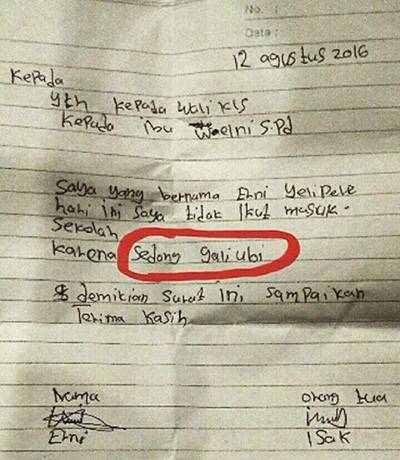 No. :
Date :
12 agustus 2016
Kepada
yth kepada wali kls
kepada ibu Welni S.Pd
Saya yang bernama Erni Yelipele
hari ini saya tidak Ikut masuk.
Sekolah
karena Sedang gali ubi
demikian surat ini, sampaikan
Terima kasih
Nama orang tua
Erni ISak